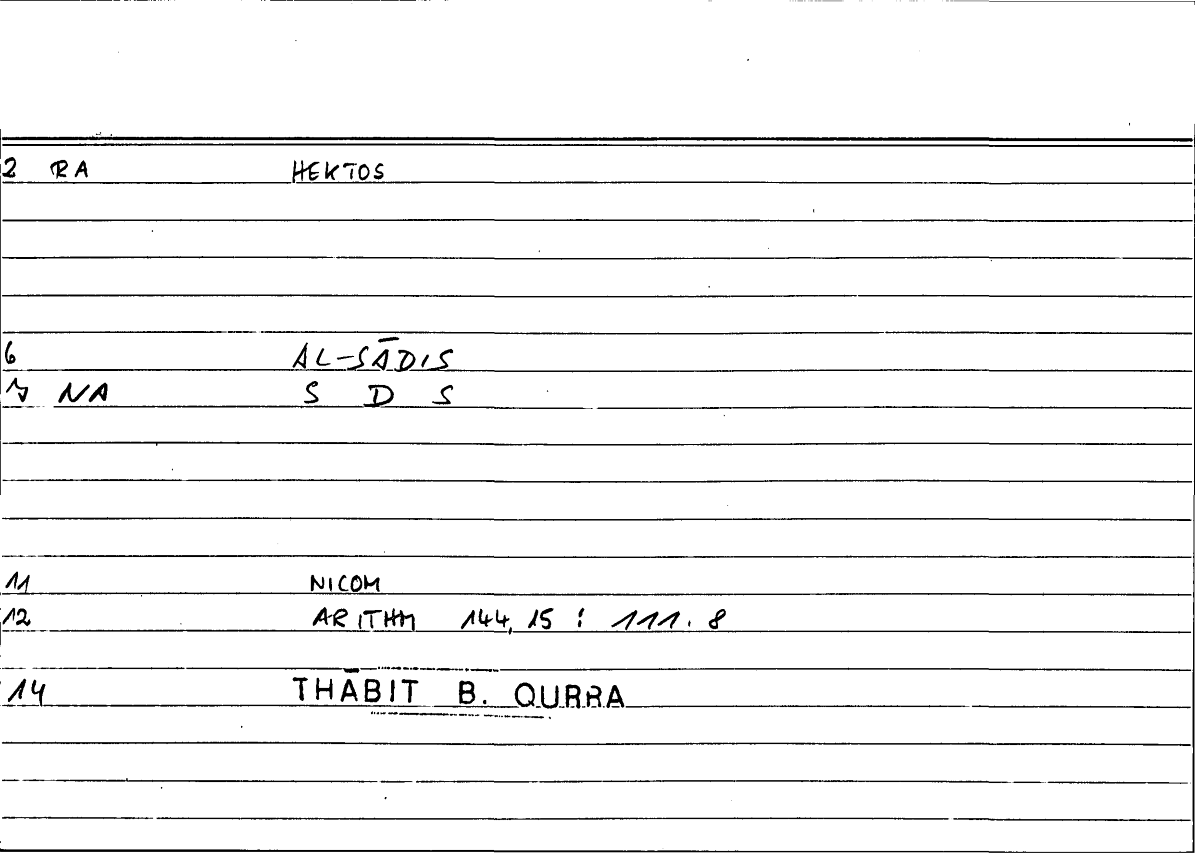 2 RA HEKTOS
6 AL-SĀDIS
7 NA S D S
11 NICOM
12 ARITHM 144,15 : 111.8
14 THĀBIT B. QURRA